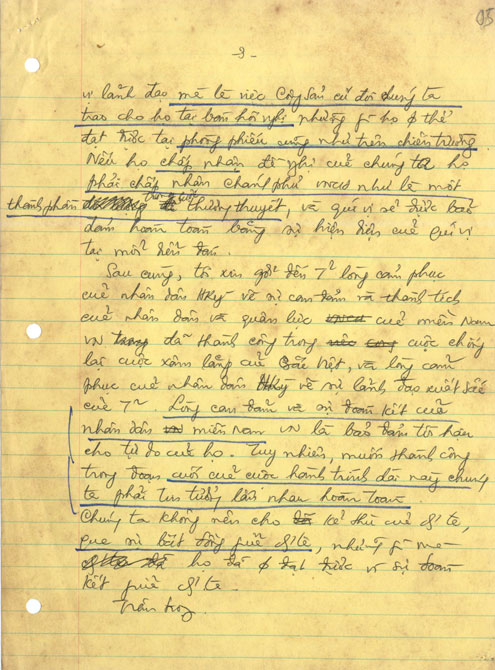 95
-3-
vị lãnh đạo mê lê việc Cộng Sản cứ đòi chúng ta
trao cho họ tại bàn hội nghị những gì họ ϕ thể
đạt được tại phòng phiếu cũng như trên chiến trường.
Nếu họ chấp nhận đề nghị của chúng ta họ
phải chấp nhận chánh phủ VNCH như là một
thành phần thương thuyết, và quí vị sẽ được bảo
đảm hoàn toàn bằng sự hiện diện của quí vị
tại mỗi diễn đàn.
Sau cùng, tôi xin gởi đến T² lòng cảm phục
của nhân dân HKỳ về sự can đảm và thành tích
của nhân dân và quân lực của miền Nam
VN đã thành công trong cuộc chống
lại cuộc xâm lăng của Bắc Việt, và lòng cảm
phục của nhân dân HKỳ về sự lãnh đạo xuất sắc
của T². Lòng can đảm và sự đoàn kết của
nhân dân miền Nam VN là bảo đảm tối hậu
cho tự do của họ. Tuy nhiên, muốn thành công
trong đoạn cuối của cuộc hành trình dài này chúng
ta phải tin tưởng lẫn nhau hoàn toàn.
Chúng ta không nên cho kẻ thù của ch. ta,
qua sự bất đồng giữa ch. ta, những gì mà
họ đã ϕ đạt được vì sự đoàn
kết giữa ch. ta.
Trân trọng